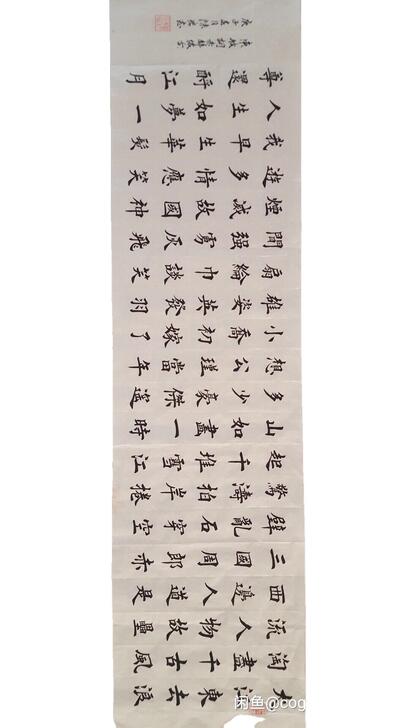 大江東去浪
淘盡千古風
流人物故壘
西邊人道是
三國周郎赤
壁亂石穿空
驚濤拍岸捲
起千堆雪江
山如畫一時
多少豪傑遙
想公瑾當年
小喬初嫁了
雄姿英發羽
扇綸巾談笑
間强虜灰飛
煙滅故國神
遊多情應笑
我早生華髮
人生如夢一
尊還酹江月
東坡詞赤壁懷古
庚子月
闲鱼@cog